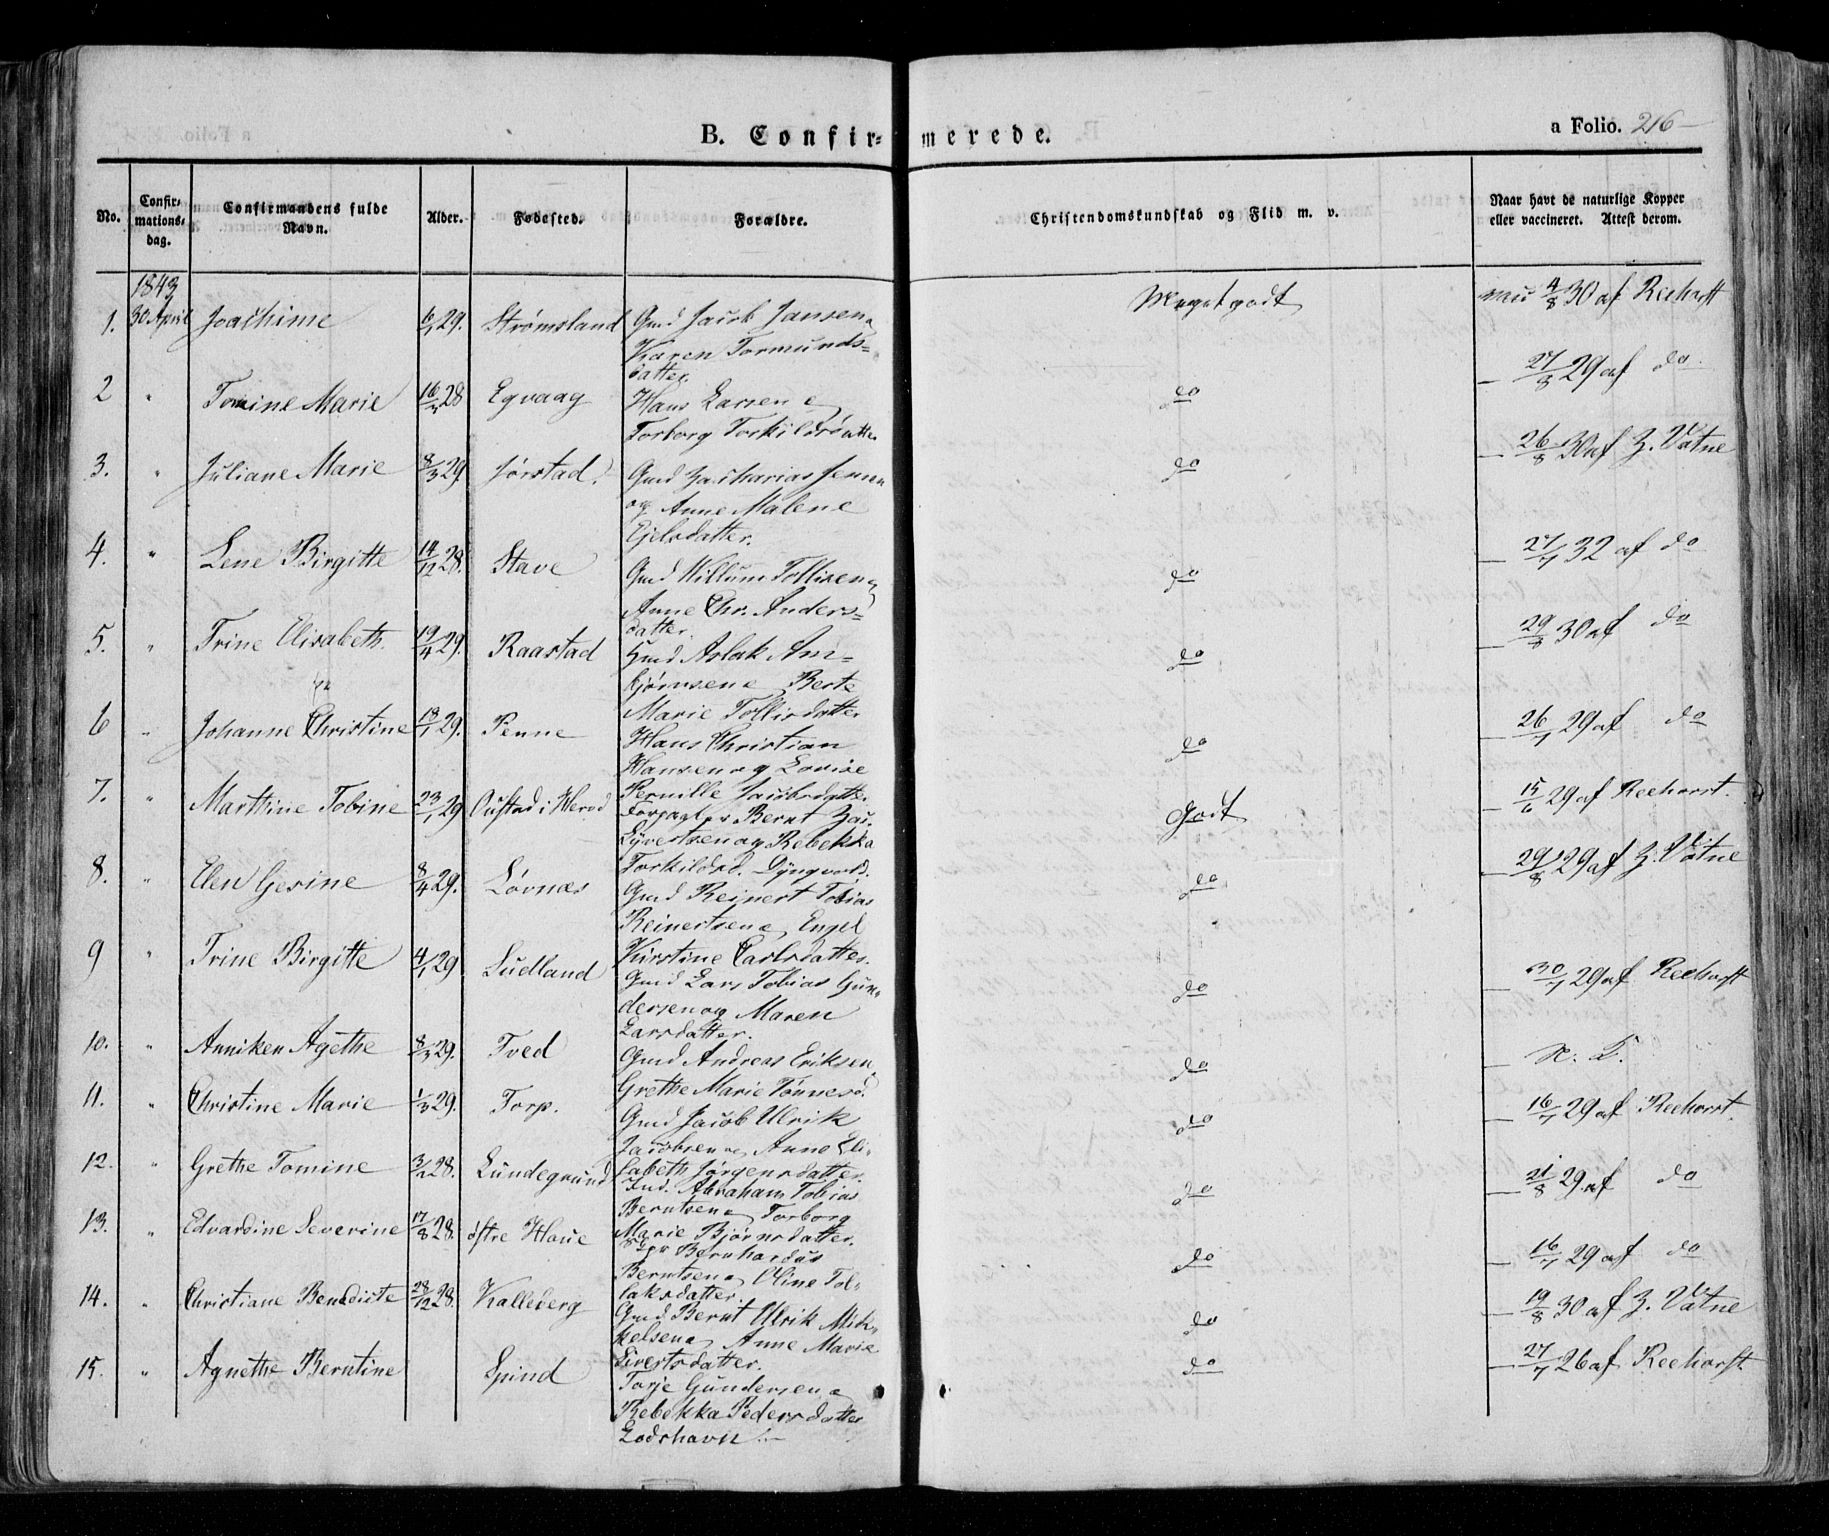 B. Confir- merede.
a Folio. 216
No.
Confir-
mations-
dag.
Confirmandens fulde
Navn.
Alder.
Fødested.
Forældre.
Christendomskundskab og Flid m. v.
Naar havt de naturlige Kopper
eller vaccineret. Attest derom.
1843
1. 30 April Joachime 6/1 29. Strømsland Gmd Jacob Jansen
Karen Tormunds=
datter.
Meget godt 4/8 30 af Reehorst
2 " Tomine Marie 16/ 28 Egvaag Hans Larsen
Torborg Torkildsdatter
do 27/8 29 af do
3. " Juliane Marie 8/3 29. Jørstad. Gmd Zacharias Jensen
og Anne Malene
Ejelsdatter.
do 26/8 30 af Z. Vatne
4. " Lene Birgitte 14/12 28. Stave Gmd Willum Tollisen
Anne Chr. Anders=
datter.
do 27/7 32 af do
5. " Trine Elisabeth. 19/4 29. Raastad Gmd Aslak Am=
bjørnsen Berte
Marie Tollisdatter
do 29/8 30 af do
6 " Johanne Christine 18/1 29. Penne Hans Christian
Hansen og Lovise
Pernille Jacobsdatter.
do 26/7 29 af do
7. " Marthine Tobine 23/1 29 Oustad i Herod Forpagter Bernt
Syvertsen og Rebekka
Torkildsd. Dyngvold.
Godt 15/6 29 af Reehorst.
8. " Elen Gesine 8/4 29. Løvnæs Gmd Reinert Tobias
Reinertsen Engel
Kirstine Carlsdatter.
do 29/8 29 af Z. Vatne
9 " Trine Birgitte 4/1 29 Ludland Gmd Lars Tobias Gun-
dersen og Maren
Larsdatter.
do 30/7 29 af Reehorst
10. " Anniken Agethe 8/3 29. Tved Gmd Andreas Eriksen
Grethe Marie Tønnesd.
do N. K.
11. " Christine Marie 1/3 29. Torp. Gmd Jacob Ulrik
Jacobsen Anne Eli-
sabeth Jørgensdatter.
do 16/7 29 af Reehorst.
12. " Grethe Tomine 3/12 28. Lundegrund Ind. Abraham Tobias
Berntsen Torborg
Marie Bjørnsdatter.
do 21/8 29 af do
13. " Edvardine Severine 17/8 28. østre Haue Bernhardus
Berntsen Oline Tol-
laksdatter.
do 16/7 29 af do
14. " Christiane Benedicte 28/12 28. Kalleberg Gmd Bernt Ulrik Mik-
kelsen Anne Marie
Sivertsdatter.
do 19/8 30 af Z. Vatne
15. " Agnethe Berntine Spind Torje Gundersen
Rebekka Pedersdatter
Lodshavn.
do 27/7 26 af Reehorst.